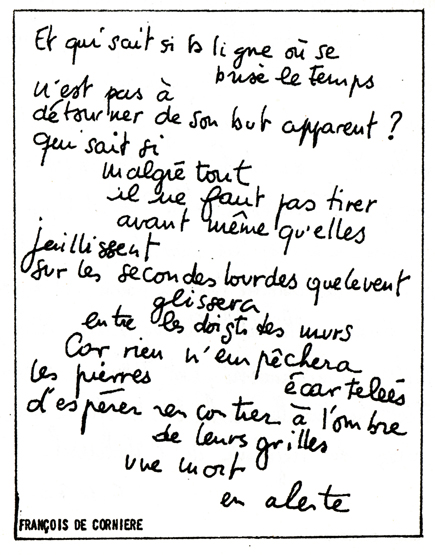 Et qui sait si la ligne où se
brise le temps
n'est pas à
détourner de son but apparent ?
qui sait si
malgré tout
il ne faut pas tirer
avant même qu'elles
jaillissent
sur les secondes lourdes que le vent
glissera
entre les doigts des murs
Car rien n'empêchera
les pierres écartelées
d'espérer rencontrer à l'ombre
de leurs grilles
une mort
en alerte
FRANÇOIS DE CORNIERE